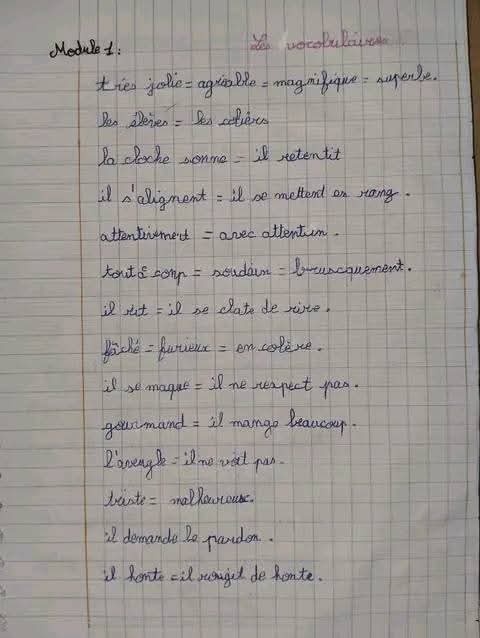 Module 1 : Les vocobulaires
très jolie = agréable = magnifique = superbe.
les élèves = les coliérs
la cloche sonne = il retentit
il s'alignent = il se mettend en rang.
attentivement = avec attentum.
tout à coup = soudain = bruscquement.
il rit = il se clate de rire.
fâché = furieux = en colère.
il se maque = il ne respect pas.
gourmand = il mange beaucoup.
l'avengle = il ne voit pas.
triste = malheureux.
il demande le pardon.
il honte = il rougit de honte.